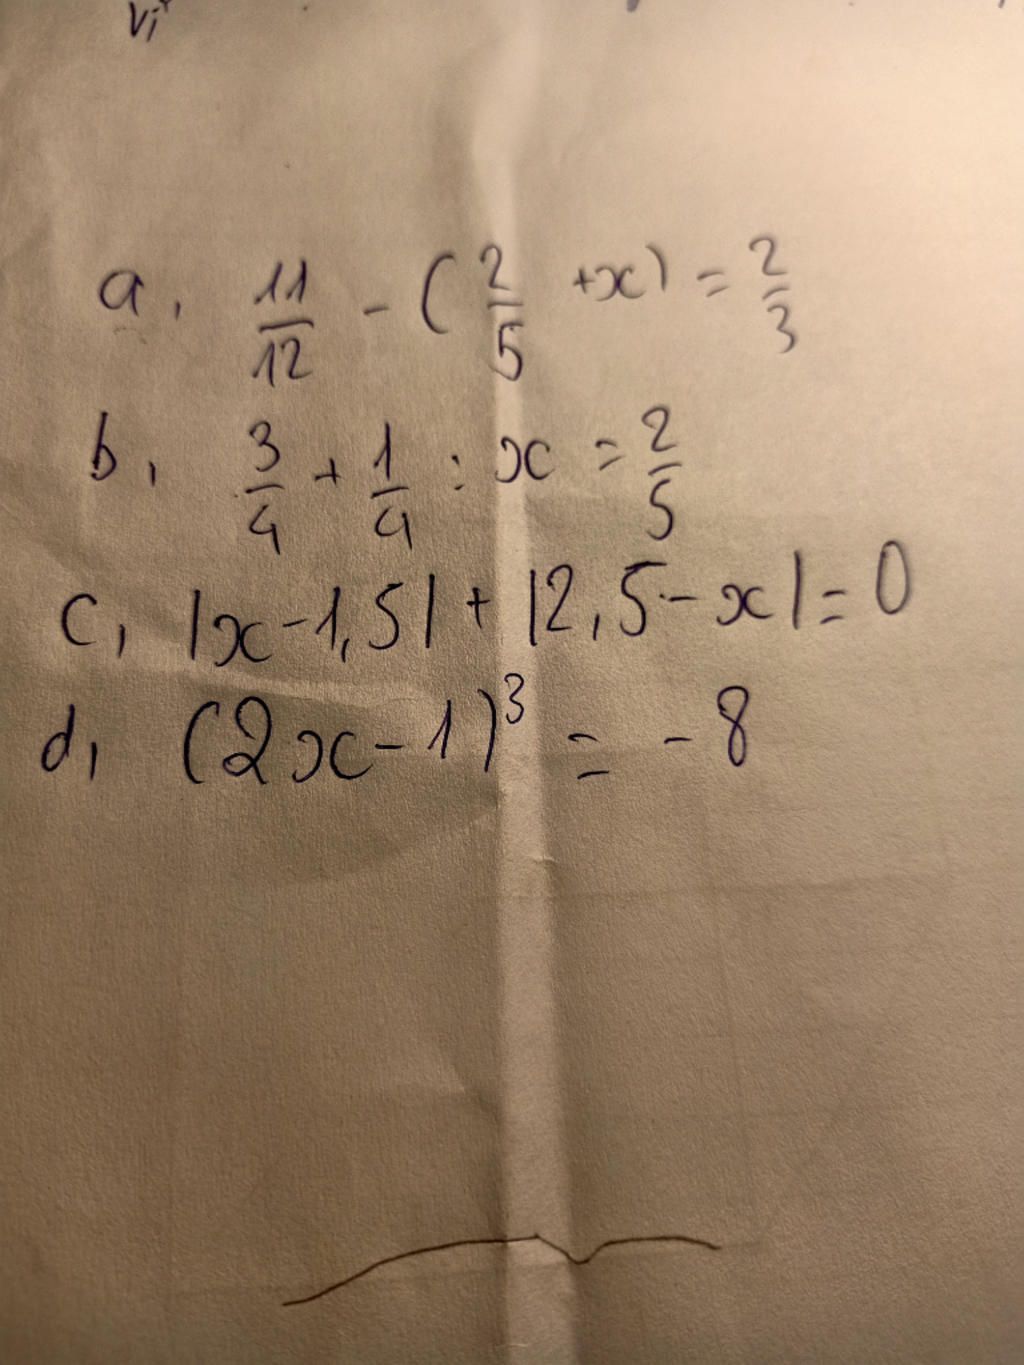 a, 11/12 - (2/5 +x) = 2/3
b, 3/4 + 1/4 : x = 2/5
c, |x-1,5| + |2,5-x| = 0
d, (2x-1)³ = -8